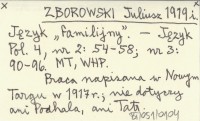 ZBOROWSKI Juliusz 1919 i.
Język „Familijny". – Język
Pol. 4, nr 2: 54-58; nr 3:
90-96. MT, WHP.
Praca napisana w Nowym
Targu w 1917 r.; nie dotyczy
ani Podhala, ani Tatr.